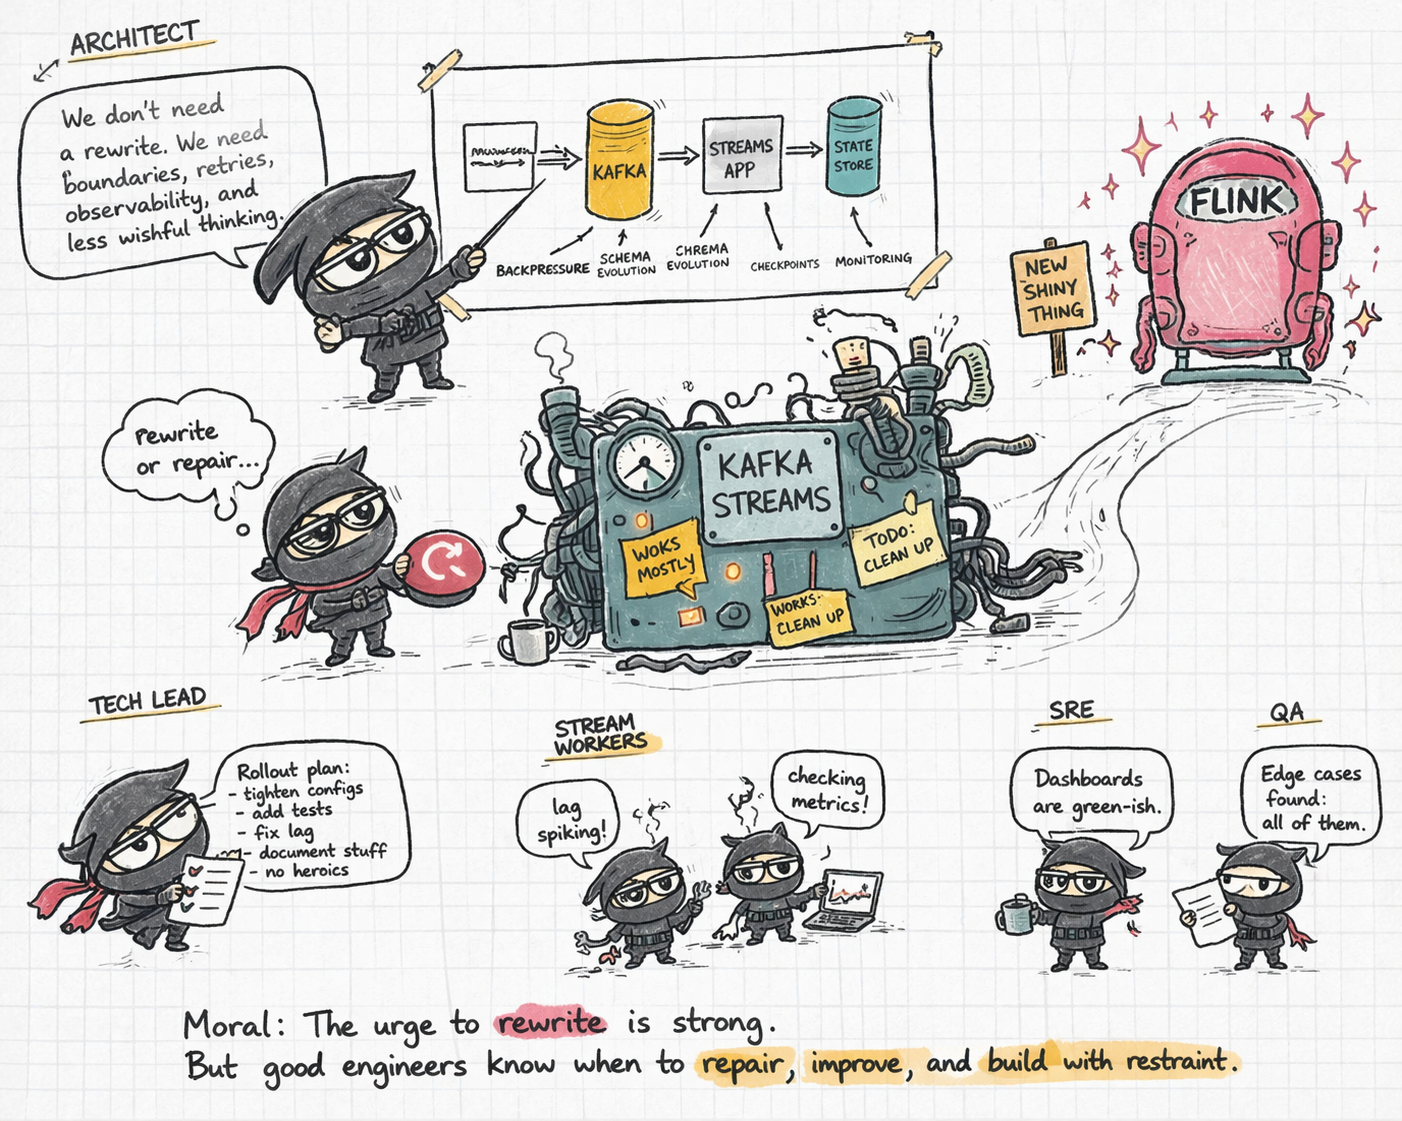 ARCHITECT
We don't need
a rewrite. We need
boundaries, retries,
observability, and
less wishful thinking.
KAFKA
STREAMS
APP
STATE
STORE
BACKPRESSURE
SCHEMA
EVOLUTION
CHREMA
EVOLUTION
CHECKPOINTS
MONITORING
FLINK
NEW
SHINY
THING
rewrite
or repair...
KAFKA
STREAMS
WOKS
MOSTLY
TODO:
CLEAN UP
WORKS-
CLEAN UP
TECH LEAD
Rollout plan:
- tighten configs
- add tests
- fix lag
- document stuff
- no heroics
STREAM
WORKERS
lag
spiking!
checking
metrics!
SRE
Dashboards
are green-ish.
QA
Edge cases
found:
all of them.
Moral: The urge to rewrite is strong.
But good engineers know when to repair, improve, and build with restraint.